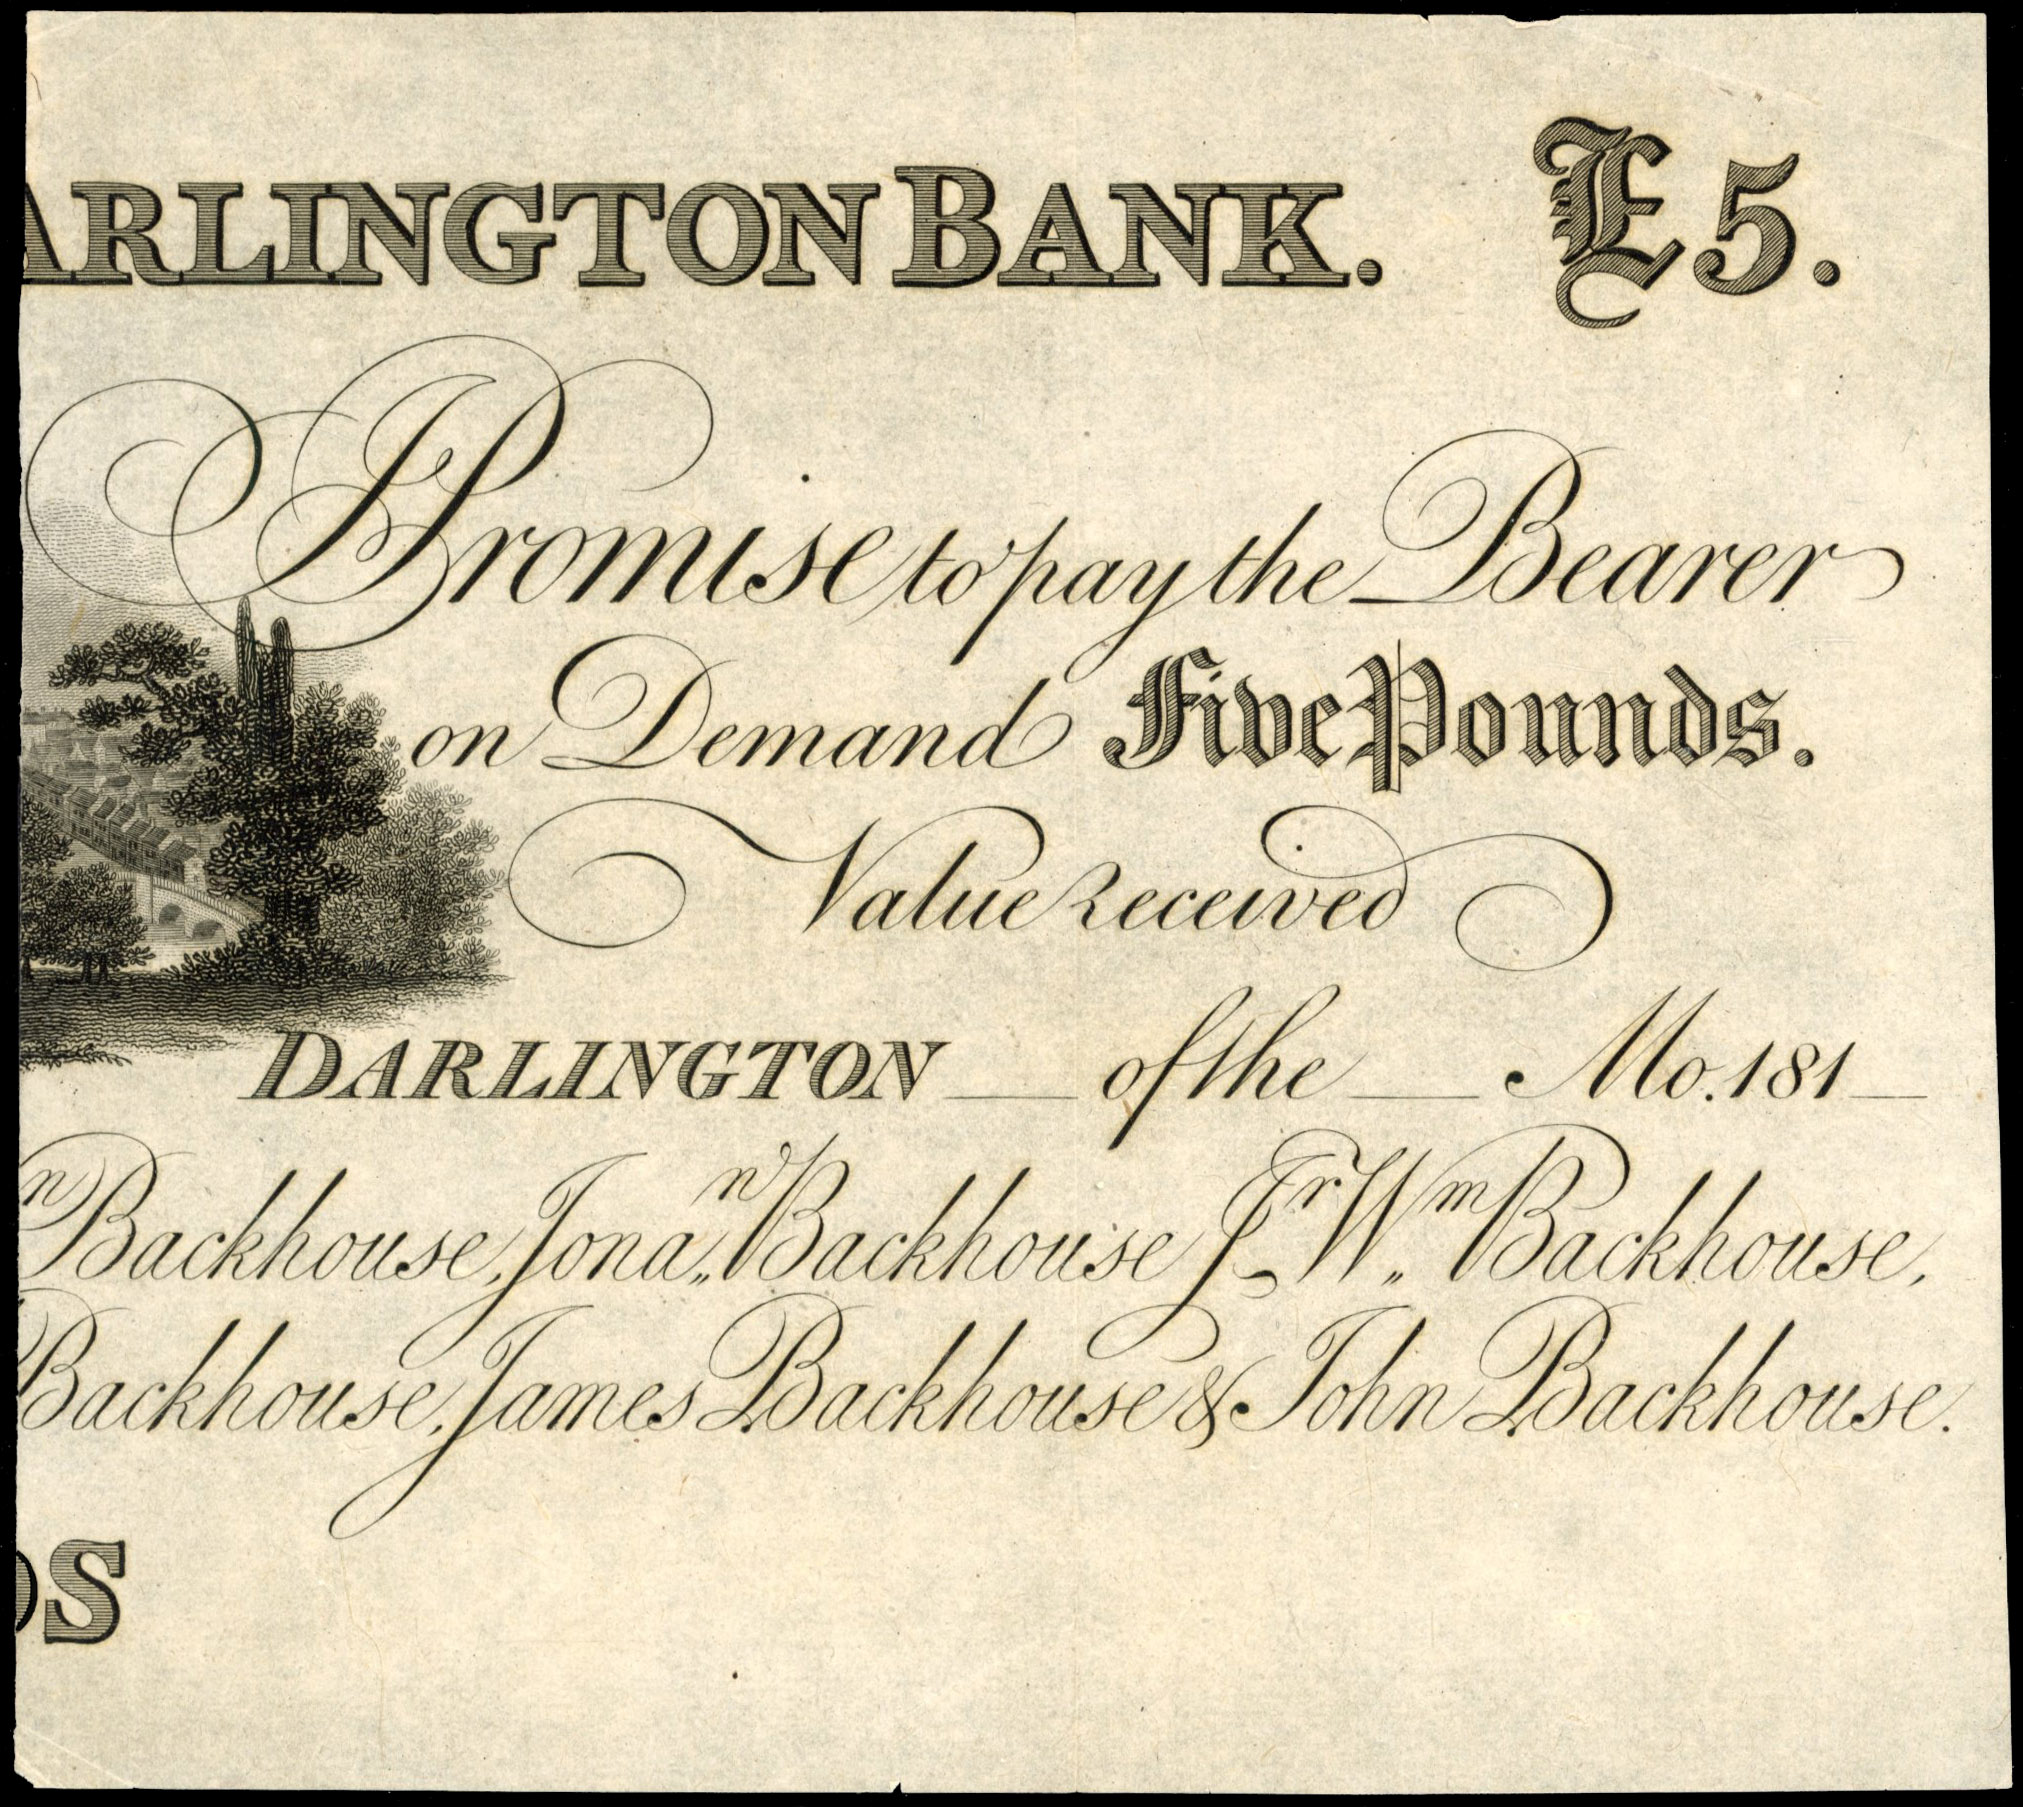 ARLINGTON BANK. £5.
I Promise to pay the Bearer
on Demand Five Pounds.
Value Received
DARLINGTON of the Mo. 181
n Backhouse, Jona,,n Backhouse Jr. Wm,, Backhouse,
Backhouse, James Backhouse & John Backhouse.
DS